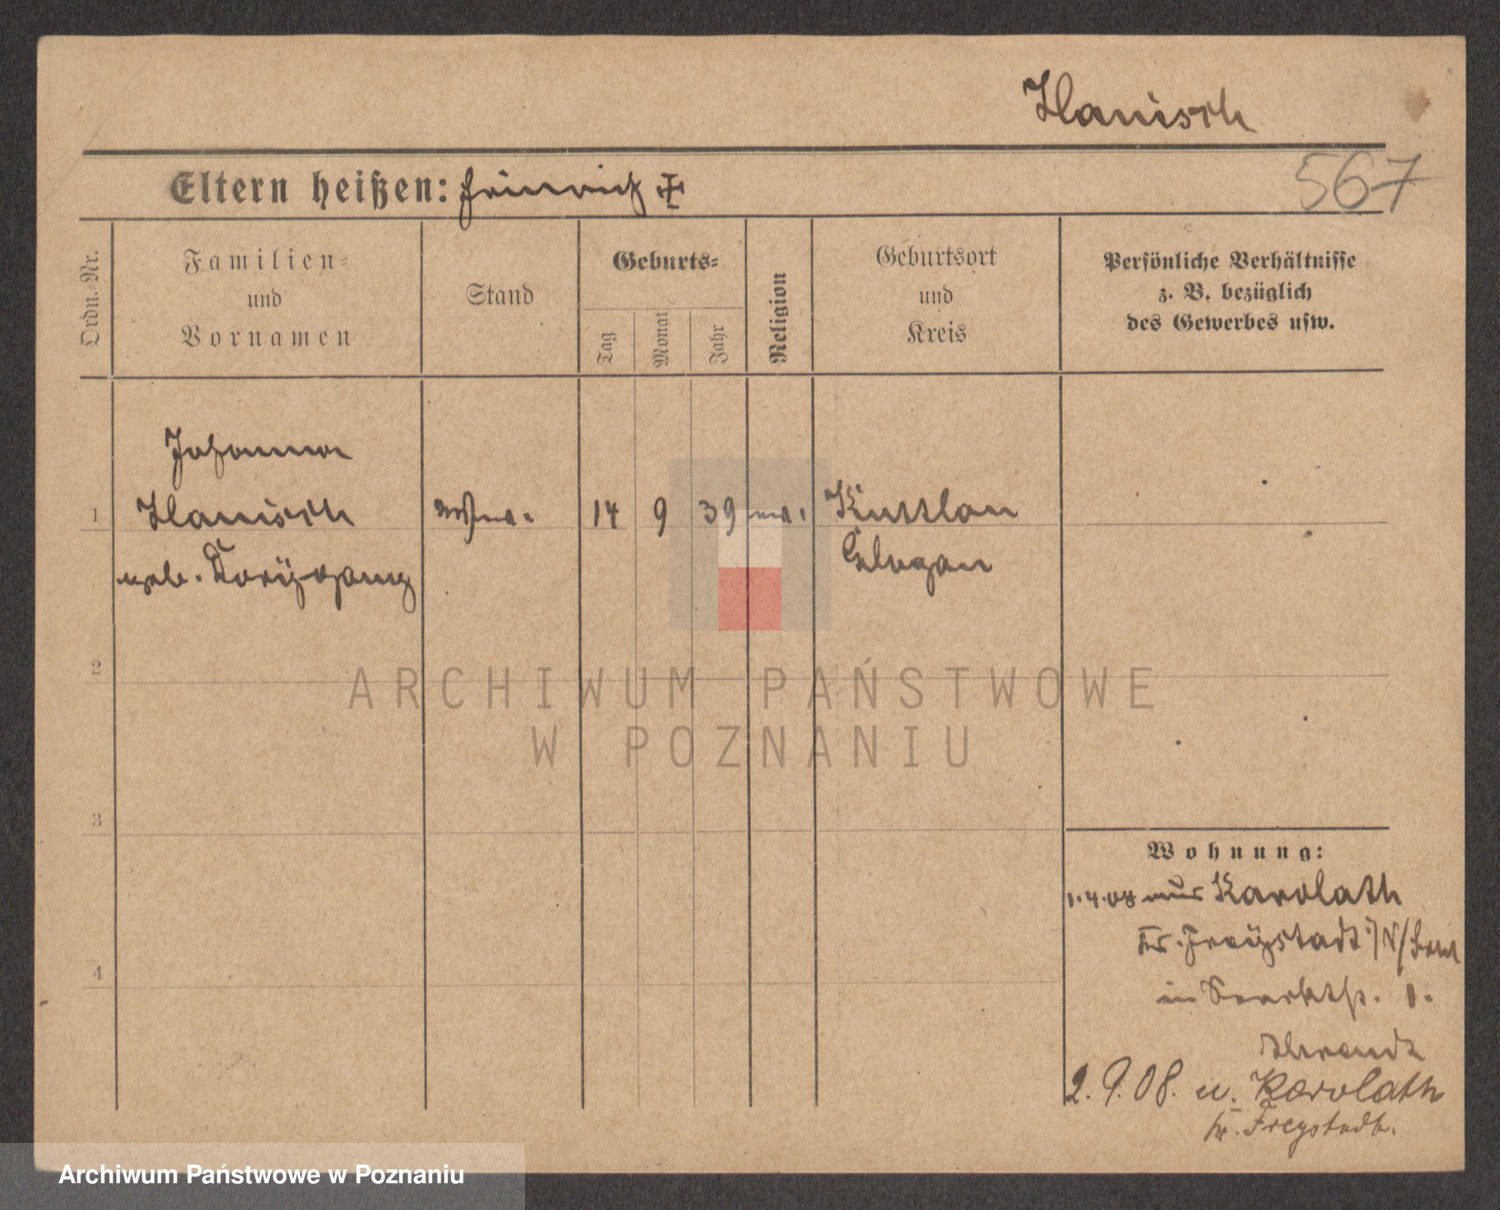 Hanisch
567
Eltern heißen: Heinrich ✠
Ordn.-Nr.
Familien-
und
Vornamen
Stand
Geburts-
Tag
Monat
Jahr
Religion
Geburtsort
und
Kreis
Persönliche Verhältnisse
z. B. bezüglich
des Gewerbes usw.
Johanna
1 Hanisch Wwe. 14 9 39 Kuttlau
geb. Glogau
2
3
4
Wohnung:
1.4.08 aus Karolath
Kr. Freystadt
in 1.
2.9.08. n. Karolath
Kr. Freystadt.
ARCHIWUM PAŃSTWOWE
W POZNANIU
Archiwum Państwowe w Poznaniu